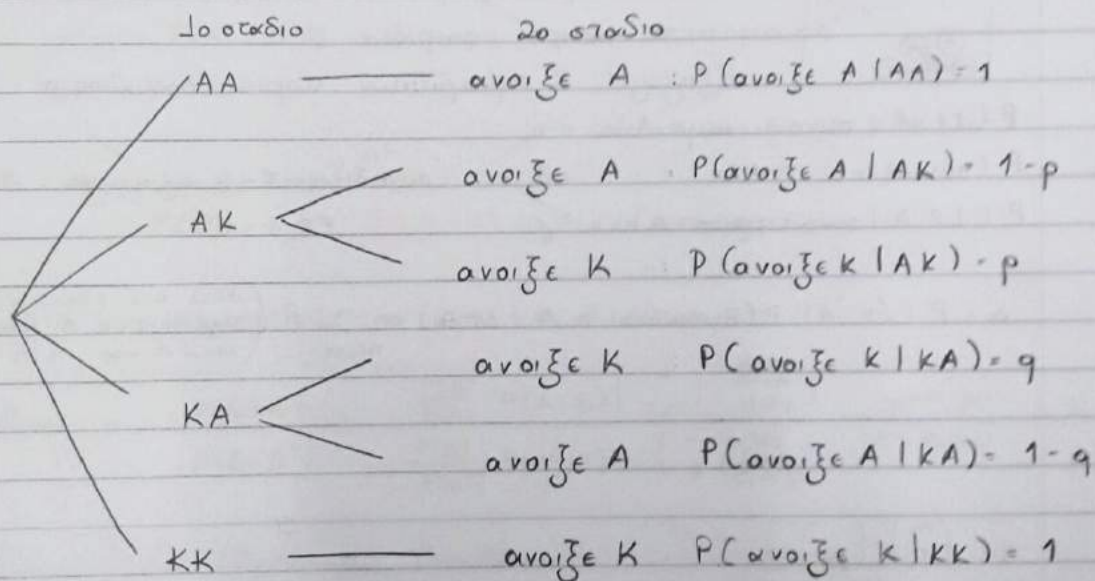 1ο σταδιο 2ο σταδιο
ΑΑ ανοιξε Α : P(ανοιξε Α | ΑΑ) = 1
ανοιξε Α : P(ανοιξε Α | ΑΚ) = 1-p
ΑΚ
ανοιξε Κ P(ανοιξε Κ | ΑΚ) = p
ανοιξε Κ P(ανοιξε Κ | ΚΑ) = q
ΚΑ
ανοιξε Α P(ανοιξε Α | ΚΑ) = 1-q
ΚΚ ανοιξε Κ P(ανοιξε Κ | ΚΚ) = 1